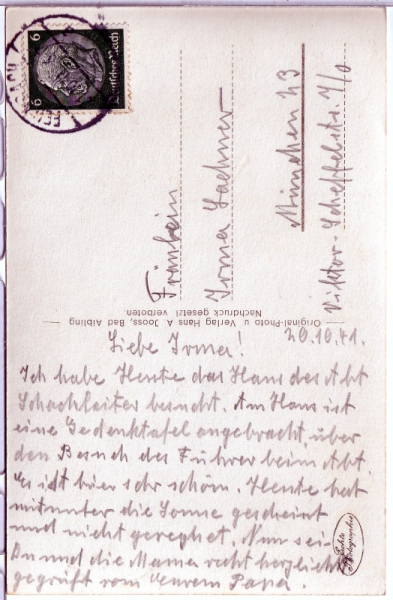 6 Deutsches Reich 6
Fräulein
Irma Lachner
München 23
Viktor-Scheffelstr. 7/0
Original-Photo u Verlag Hans A Jooss, Bad Aibling
Nachdruck gesetzl verboten
20.10.41.
Liebe Irma!
Ich habe Heute das Haus des Abt
Schachleiter besucht. Am Haus ist
eine Gedenktafel angebracht, über
den Besuch des Führer beim Abt.
Es ist hier sehr schön. Heute hat
mitunter die Sonne gescheint
und nicht geregnet. Nun sei
Du und die Mama recht herzlichst
gegrüßt vom Eurem Papa.
Echte
Photographie